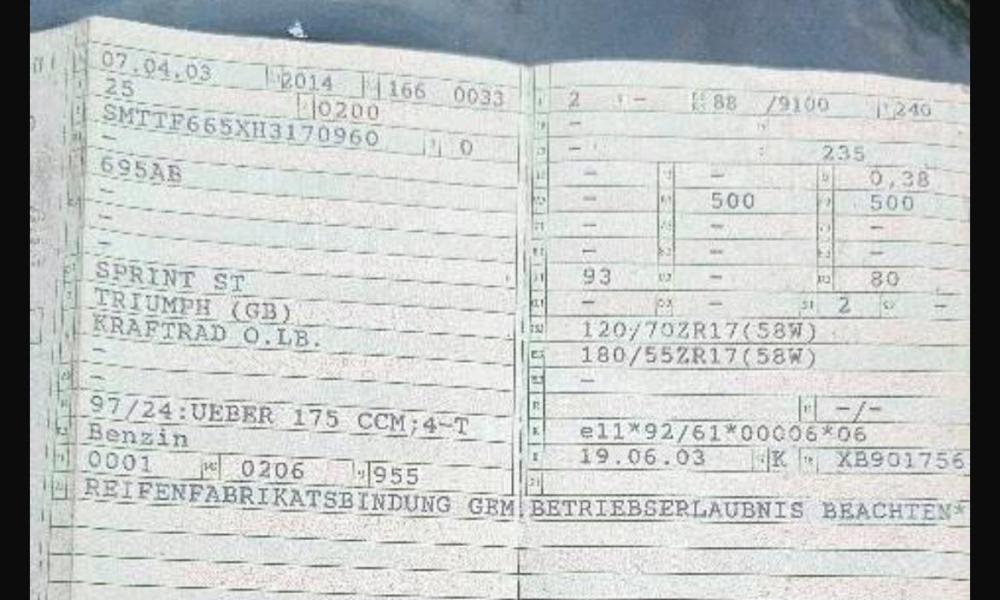 07.04.03 2014 166 0033
25 0200
SMTTF665XH3170960 0
-
695AB
-
-
-
SPRINT ST
TRIUMPH (GB)
KRAFTRAD O.LB.
-
-
97/24:UEBER 175 CCM;4-T
Benzin
0001 0206 955
2 - 88 /9100 240
-
- 235
- - 0,38
- 500 500
- - -
- - -
93 - 80
- - 2 -
120/70ZR17(58W)
180/55ZR17(58W)
-
-/-
e11*92/61*00006*06
19.06.03 K XB901756
REIFENFABRIKATSBINDUNG GEM.BETRIEBSERLAUBNIS BEACHTEN*